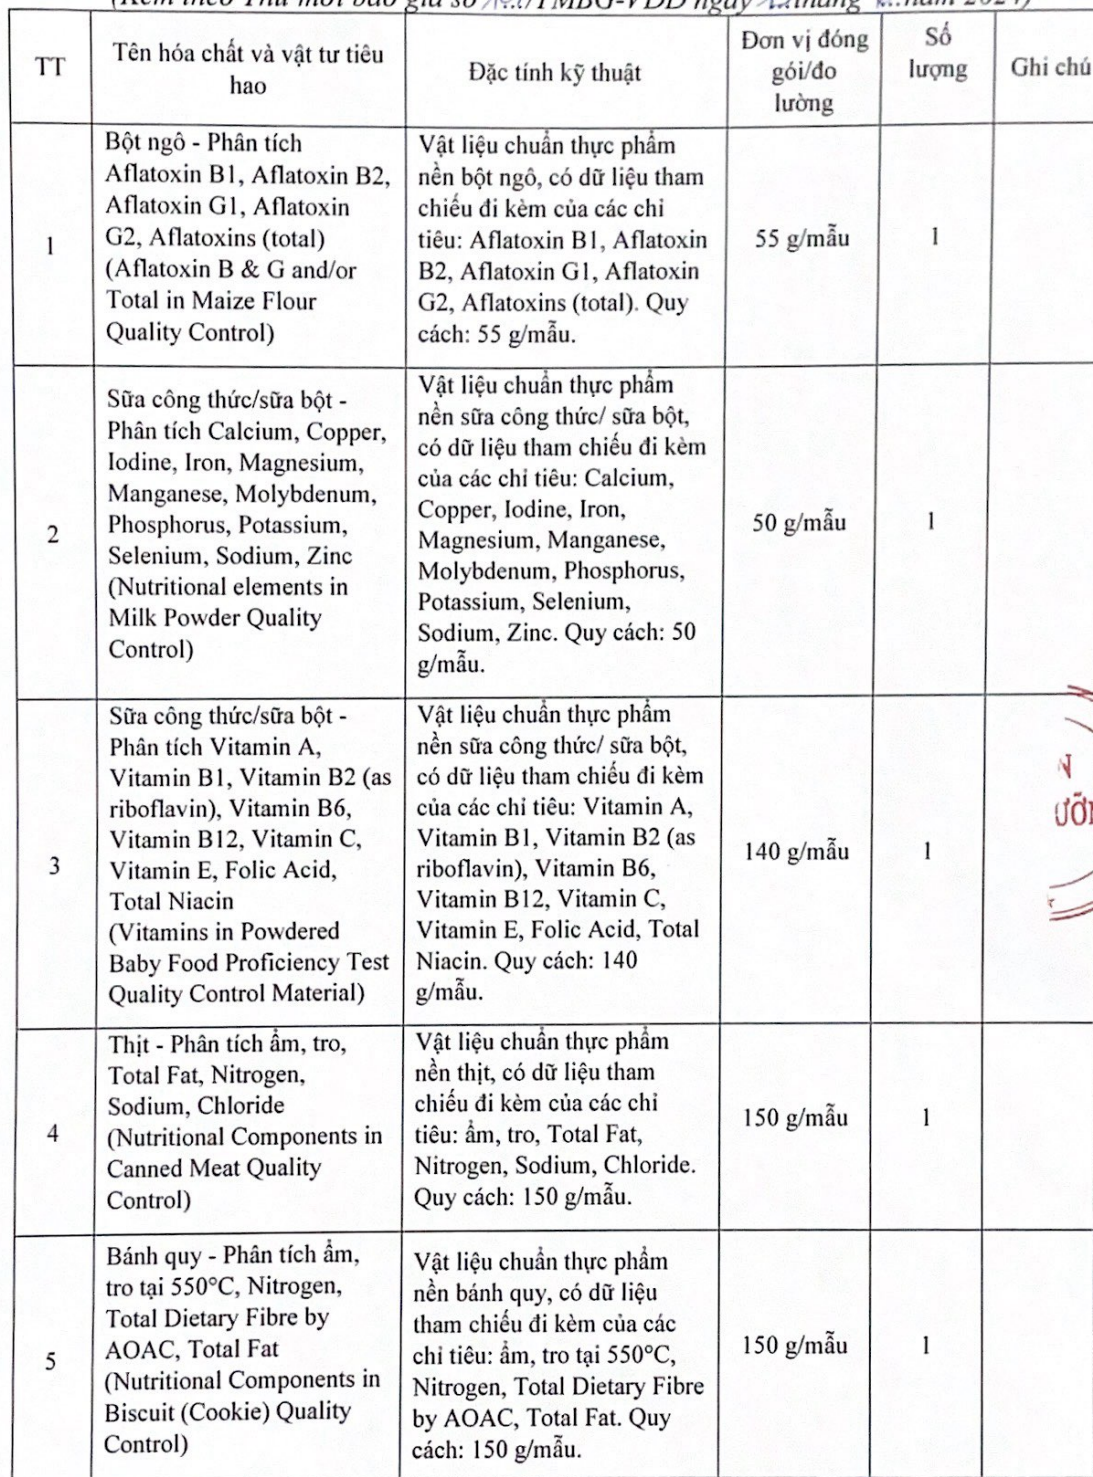 (Kèm theo Thư mời báo giá số /TMBG-VDD ngày tháng năm 2024)
TT
Tên hóa chất và vật tư tiêu
hao
Đặc tính kỹ thuật
Đơn vị đóng
gói/đo
lường
Số
lượng
Ghi chú
1
Bột ngô - Phân tích
Aflatoxin B1, Aflatoxin B2,
Aflatoxin G1, Aflatoxin
G2, Aflatoxins (total)
(Aflatoxin B & G and/or
Total in Maize Flour
Quality Control)
Vật liệu chuẩn thực phẩm
nền bột ngô, có dữ liệu tham
chiếu đi kèm của các chỉ
tiêu: Aflatoxin B1, Aflatoxin
B2, Aflatoxin G1, Aflatoxin
G2, Aflatoxins (total). Quy
cách: 55 g/mẫu.
55 g/mẫu
1
2
Sữa công thức/sữa bột -
Phân tích Calcium, Copper,
Iodine, Iron, Magnesium,
Manganese, Molybdenum,
Phosphorus, Potassium,
Selenium, Sodium, Zinc
(Nutritional elements in
Milk Powder Quality
Control)
Vật liệu chuẩn thực phẩm
nền sữa công thức/ sữa bột,
có dữ liệu tham chiếu đi kèm
của các chỉ tiêu: Calcium,
Copper, Iodine, Iron,
Magnesium, Manganese,
Molybdenum, Phosphorus,
Potassium, Selenium,
Sodium, Zinc. Quy cách: 50
g/mẫu.
50 g/mẫu
1
3
Sữa công thức/sữa bột -
Phân tích Vitamin A,
Vitamin B1, Vitamin B2 (as
riboflavin), Vitamin B6,
Vitamin B12, Vitamin C,
Vitamin E, Folic Acid,
Total Niacin
(Vitamins in Powdered
Baby Food Proficiency Test
Quality Control Material)
Vật liệu chuẩn thực phẩm
nền sữa công thức/ sữa bột,
có dữ liệu tham chiếu đi kèm
của các chỉ tiêu: Vitamin A,
Vitamin B1, Vitamin B2 (as
riboflavin), Vitamin B6,
Vitamin B12, Vitamin C,
Vitamin E, Folic Acid, Total
Niacin. Quy cách: 140
g/mẫu.
140 g/mẫu
1
4
Thịt - Phân tích ẩm, tro,
Total Fat, Nitrogen,
Sodium, Chloride
(Nutritional Components in
Canned Meat Quality
Control)
Vật liệu chuẩn thực phẩm
nền thịt, có dữ liệu tham
chiếu đi kèm của các chỉ
tiêu: ẩm, tro, Total Fat,
Nitrogen, Sodium, Chloride.
Quy cách: 150 g/mẫu.
150 g/mẫu
1
5
Bánh quy - Phân tích ẩm,
tro tại 550°C, Nitrogen,
Total Dietary Fibre by
AOAC, Total Fat
(Nutritional Components in
Biscuit (Cookie) Quality
Control)
Vật liệu chuẩn thực phẩm
nền bánh quy, có dữ liệu
tham chiếu đi kèm của các
chỉ tiêu: ẩm, tro tại 550°C,
Nitrogen, Total Dietary Fibre
by AOAC, Total Fat. Quy
cách: 150 g/mẫu.
150 g/mẫu
1